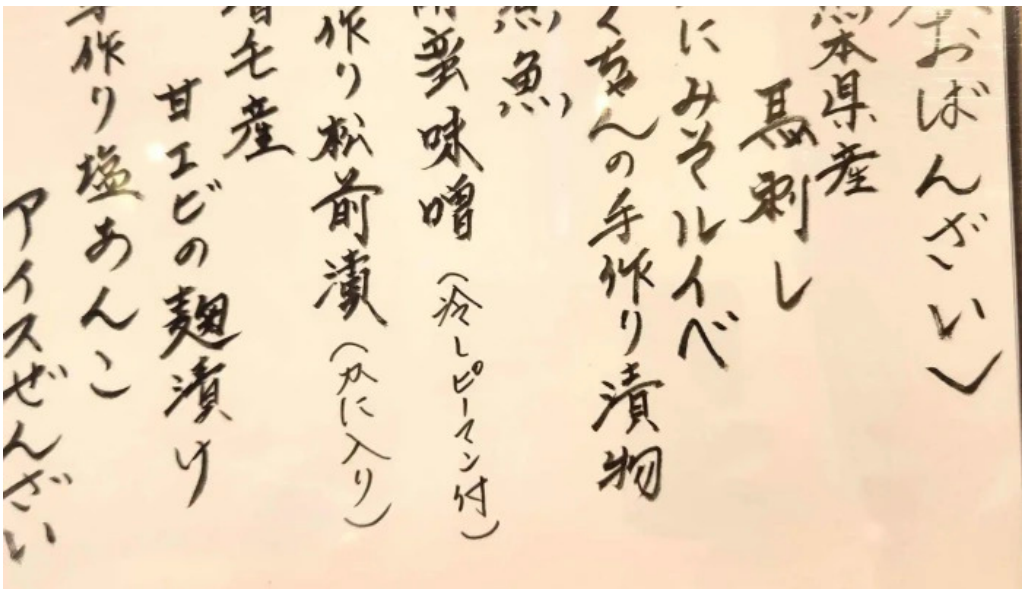 おばんざい〉
本県産
馬刺し
にみそルイベ
ちゃんの手作り漬物
魚
蛮味噌（冷しピーマン付）
作り松前漬（カに入り）
毛産
甘エビの麹漬け
作り塩あんこ
アイスぜんざい